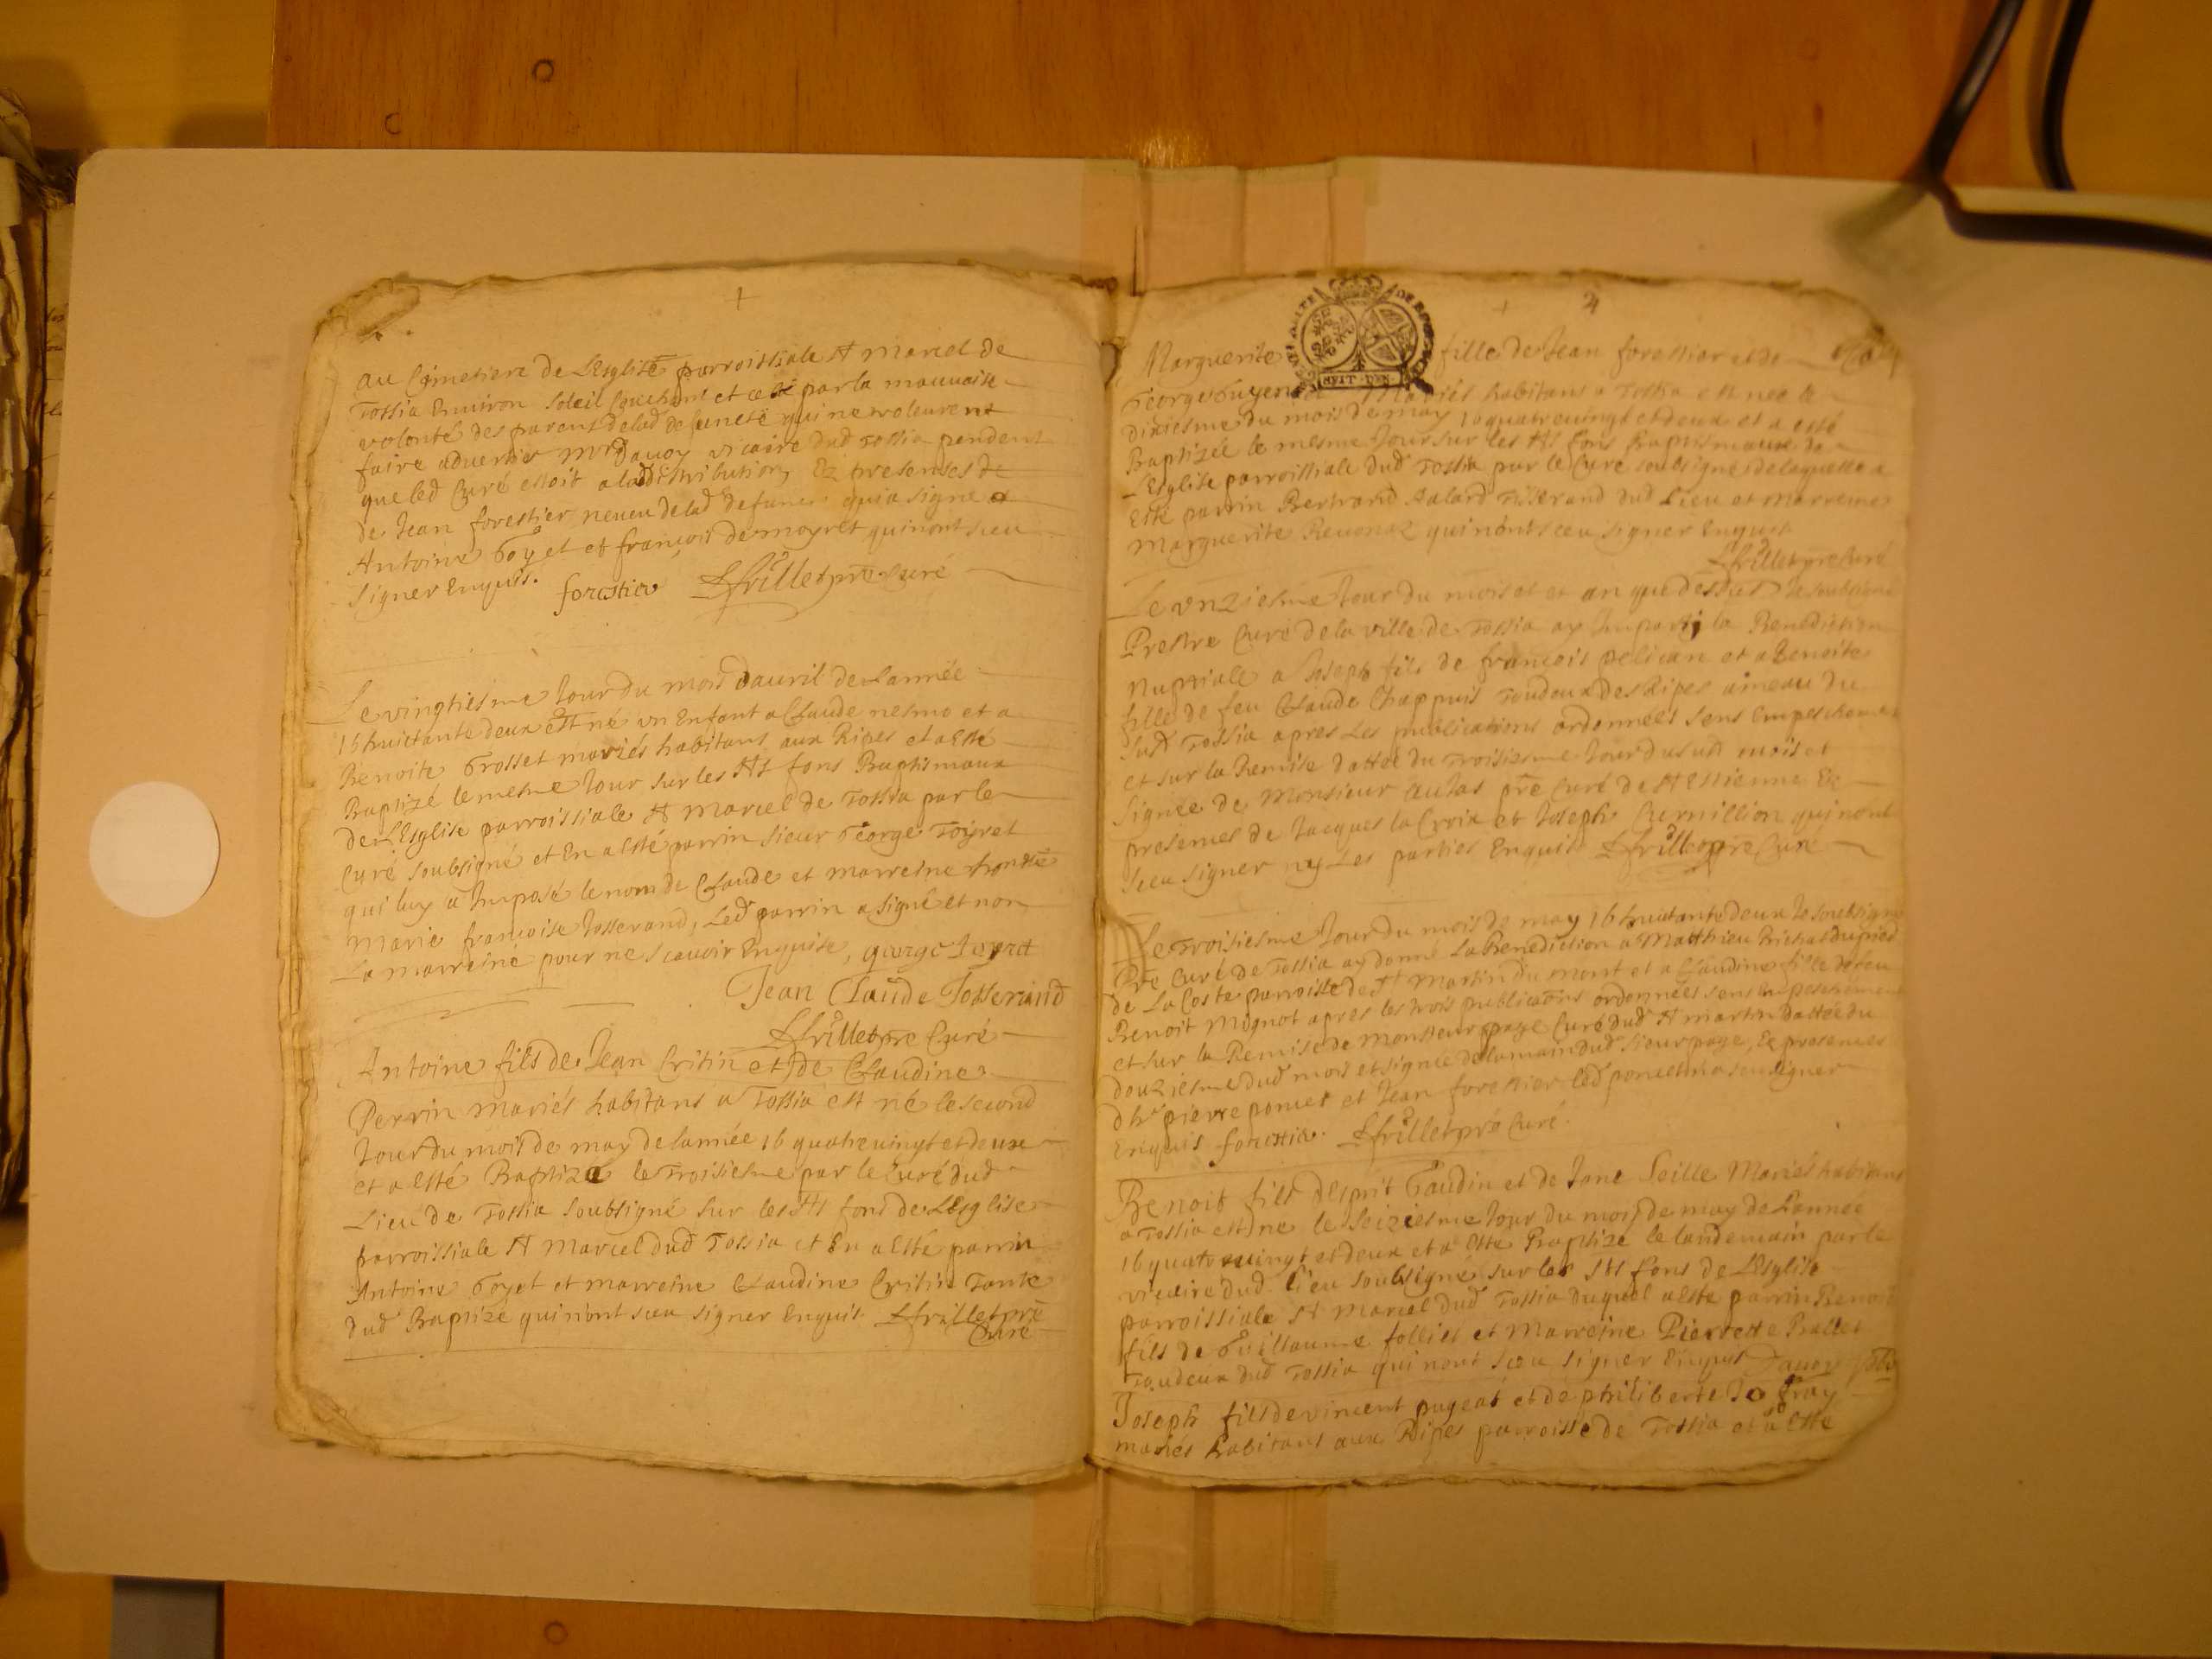 au Cimetiere de L'Esglise parroissiale St Marcel de
Tossia Environ soleil couchant et ce par la mauvaise
volonté des parents de lad defuncte qui ne voleurent
faire advertir Mre Davoy vicaire dud Tossia pendent
que led Curé estoit a la distribution, Ez presenses de
de Jean forestier neveu de lad defuncte qui a signé &
Antoine Goyet et françois demoyret qui n'ont sceu
signer Enquis. forestier Ffrilletpre Curé
Le vingtiesme Jour du mois davril de Lannée
16 huictante deux est né un Enfant a Claude nesmo et a
Benoite Grosset mariés habitans aux Ripes et a Esté
Baptizé le mesme Jour sur les Sts fons Baptismaux
de L'Esglise parroissiale St Marcel de Tossia par le
Curé soubsigné et En a esté parrin sieur George Toyret
qui luy a Imposé le nom de Claude et marreine
Marie françoise Josserand, Led parrin a signé et non
La marreine pour ne scavoir Enquise, george toyret
Jean Claude Josserand
Ffrilletpre Curé
Antoine fils de Jean Critin et de Claudine
Perrin mariés habitans a Tossia est né le second
Jour du mois de may de lannée 16 quatre vingt et deux
et a esté Baptizé le Troisiesme par le Curé dud
Lieu de Tossia soubsigné sur les Sts fons de L'Esglise
parroissiale St Marcel dud Tossia et En a Esté parrin
Antoine Goyet et marreine Claudine Critin Tante
dud Baptizé qui n'ont sceu signer Enquis Ffrilletpre
Curé
4
Marguerite fille de Jean forestier et de
George mariés habitans a Tossia est née le
dixiesme du mois de may 16 quatrevingt et deux et a esté
Baptizée le mesme Jour sur les Sts fons Baptismaux de
L'Esglise parroissiale dud Tossia par le Curé soubsigné de laquelle a
Esté parrin Bertrand Tisserand dud Lieu et Marreine
Marguerite qui n'ont sceu signer Enquis
Ffrilletpre Curé
Le unziesme Jour du mois et et an que dessus Je soubsigné
Prestre Curé de la ville de Tossia ay Imparti la Benediction
Nuptiale a Joseph fils de françois Pelican et a Benoite
fille de feu Claude Chappuis Toudeux des Ripes ameau du
sud Tossia apres Les publications ordonnées sens Empeschement
et sur la Remise dattée du Troisiesme Jour du sud mois et
signée de Monsieur pre Curé de St Estienne Ez
presenses de Jacques la Croix et Joseph Curnillion qui n'ont
sceu signer ny Les parties Enquis Ffrilletpre Curé
Le Troisiesme Jour du mois de may 16 huictante deux Je soubsigné
Pre Curé de Tossia ay donné La Benediction a Matthieu Brichat du pied
de La Coste parroisse de St Martin du mont et a Claudine fille de feu
Benoit Mognot apres les trois publications ordonnées sens Empeschement
et sur la Remise de Monsieur page Curé dud St martin dattée du
douziesme dud mois et signée de la main dud sieur page, Ez presenses
dhe pierre poncet et Jean forestier led poncet n'a sceu signer
Enquis forestier. Ffrilletpre Curé.
Benoit fils d'Esprit Gaudin et de Jane Seille Mariés habitans
a Tossia est né le seiziesme Jour du mois de may de Lannée
16 quatre vingt et deux et a Esté Baptizé le landemain par le
vicaire dud lieu soubsigné sur les Sts fons de L'Esglise
parroissiale St Marcel dud Tossia duquel a Esté parrin Benoit
fils de Guillaume follies et Marreine Pierrette Ballet
Toudeux dud Tossia qui n'ont sceu signer Enquis Davoy
Joseph fils de vincent pageat et de philiberte Jo
mariés habitans aux Ripes parroisse de Tossia et a Esté